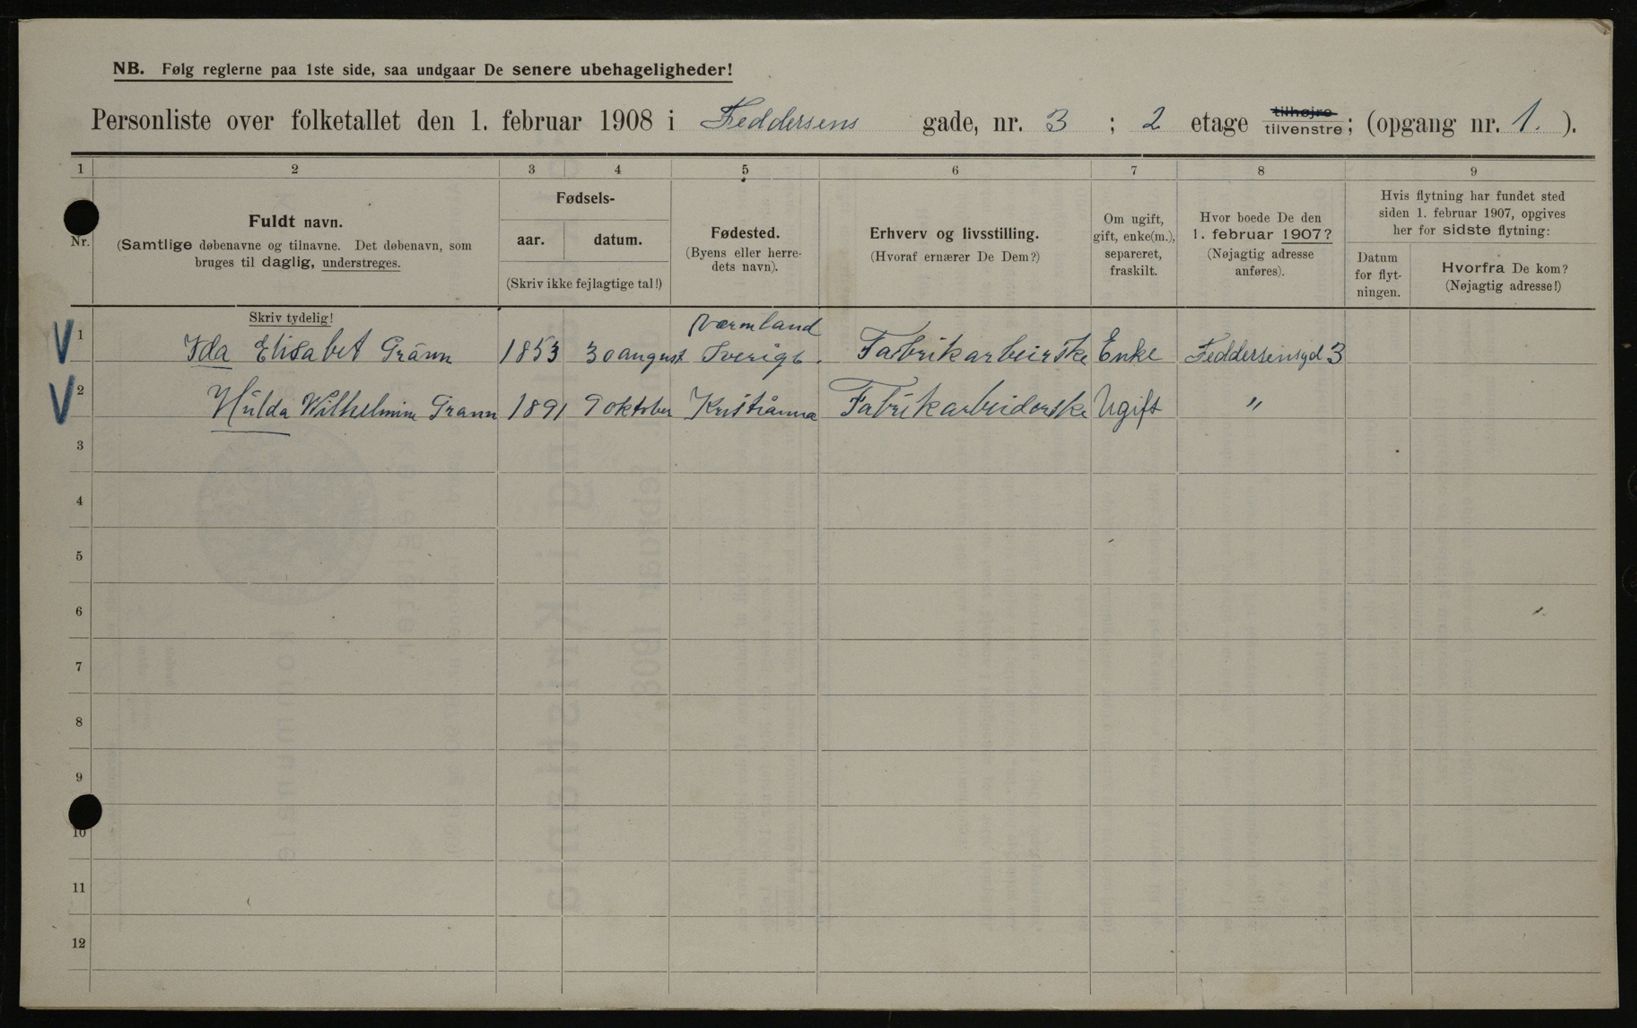 NB. Følg reglerne paa 1ste side, saa undgaar De senere ubehageligheder!
Personliste over folketallet den 1. februar 1908 i Feddersens gade, nr. 3 ; 2 etage tilhøjre tilvenstre; (opgang nr. 1. ).
1 2 3 4 5 6 7 8 9
Nr.
Fuldt navn.
(Samtlige døbenavne og tilnavne. Det døbenavn, som
bruges til daglig, understreges.
Fødsels-
aar. datum.
(Skriv ikke fejlagtige tal!)
Fødested.
(Byens eller herre-
dets navn).
Erhverv og livsstilling.
(Hvoraf ernærer De Dem?)
Om ugift,
gift, enke(m.),
separeret,
fraskilt.
Hvor boede De den
1. februar 1907?
(Nøjagtig adresse
anføres).
Hvis flytning har fundet sted
siden 1. februar 1907, opgives
her for sidste flytning:
Datum
for flyt-
ningen.
Hvorfra De kom?
(Nøjagtig adresse!)
Skriv tydelig!
Værmland
V 1 Ida Elisabet Gränn 1853 30 august Sverige. Fabrikarbeirske Enke Feddersensgd 3
V 2 Hulda Wilhelmine Grann 1891 9 oktober Kristiania Fabrikarbeiderske Ugift "
3
4
5
6
7
8
9
10
11
12